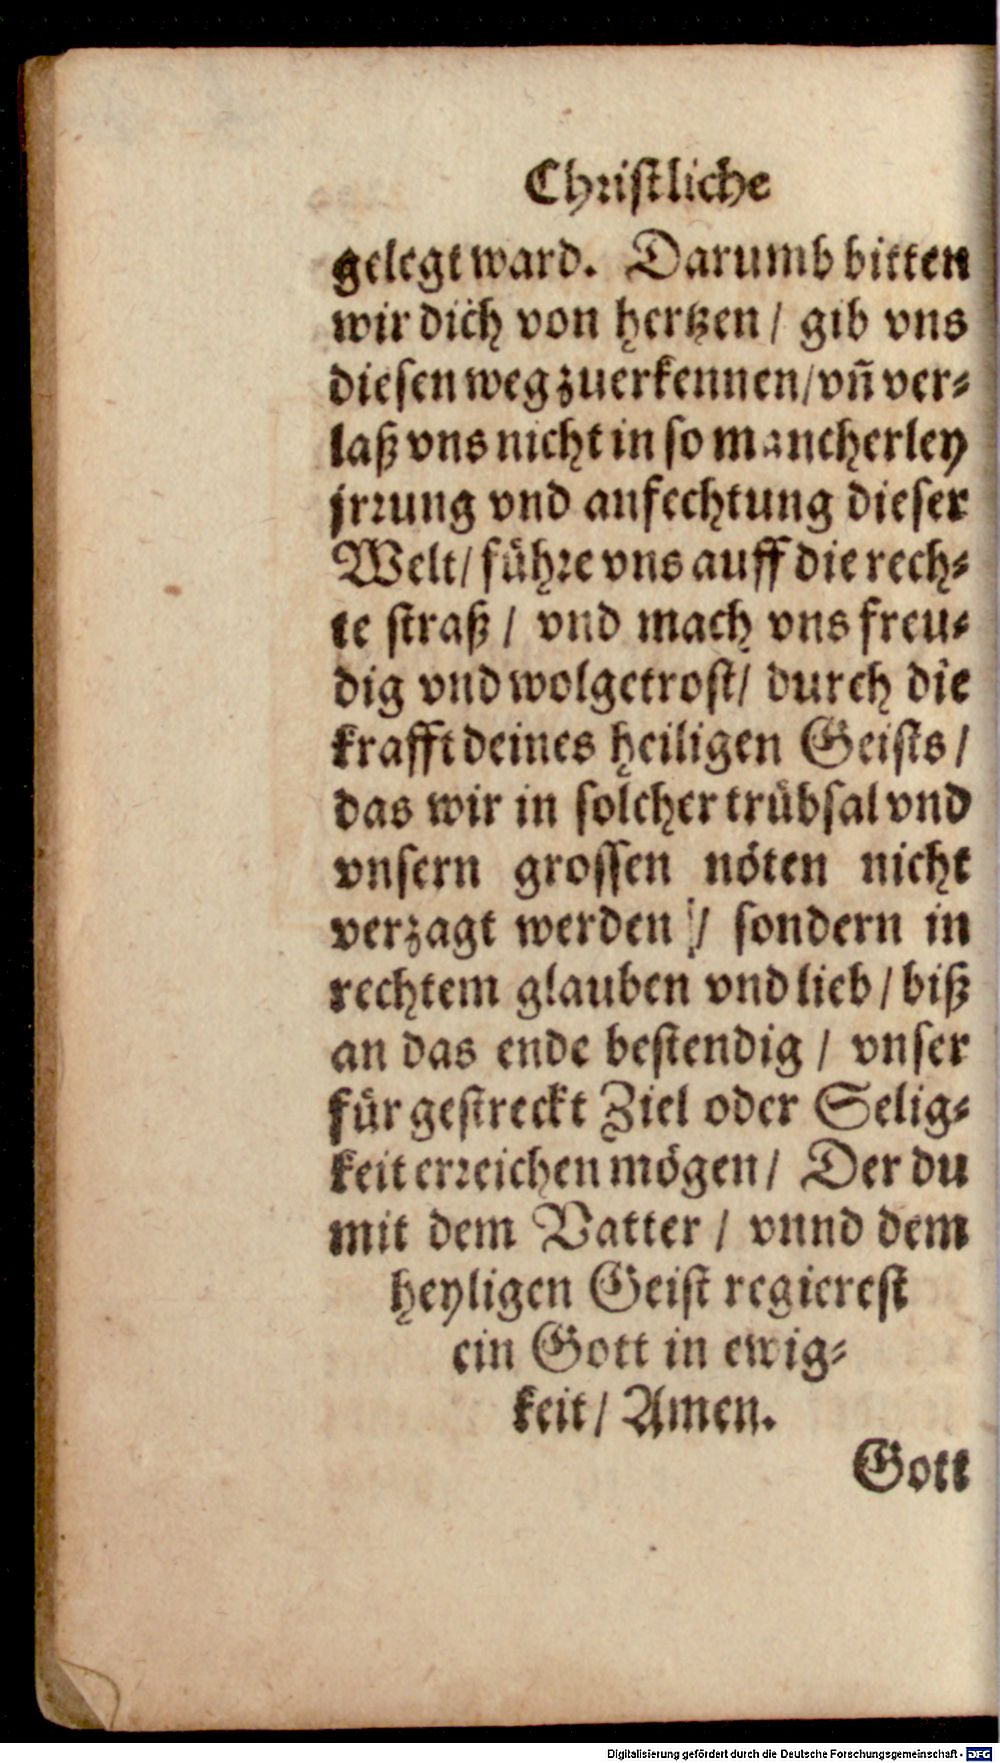 Christliche
gelegt ward. Darumb bitten
wir dich von hertzen / gib vns
diesen weg zuerkennen / vñ ver-
laß vns nicht in so mancherley
jrrung vnd anfechtung dieser
Welt / führe vns auff die rech-
te straß / vnd mach vns freu-
dig vnd wolgetrost / durch die
krafft deines heiligen Geists /
das wir in solcher trübsal vnd
vnsern grossen nöten nicht
verzagt werden / sondern in
rechtem glauben vnd lieb / biß
an das ende bestendig / vnser
für gestreckt Ziel oder Selig-
keit erreichen mögen / Der du
mit dem Vatter / vnnd dem
heyligen Geist regierest
ein Gott in ewig-
keit / Amen.
Gott
Digitalisierung gefördert durch die Deutsche Forschungsgemeinschaft - DFG